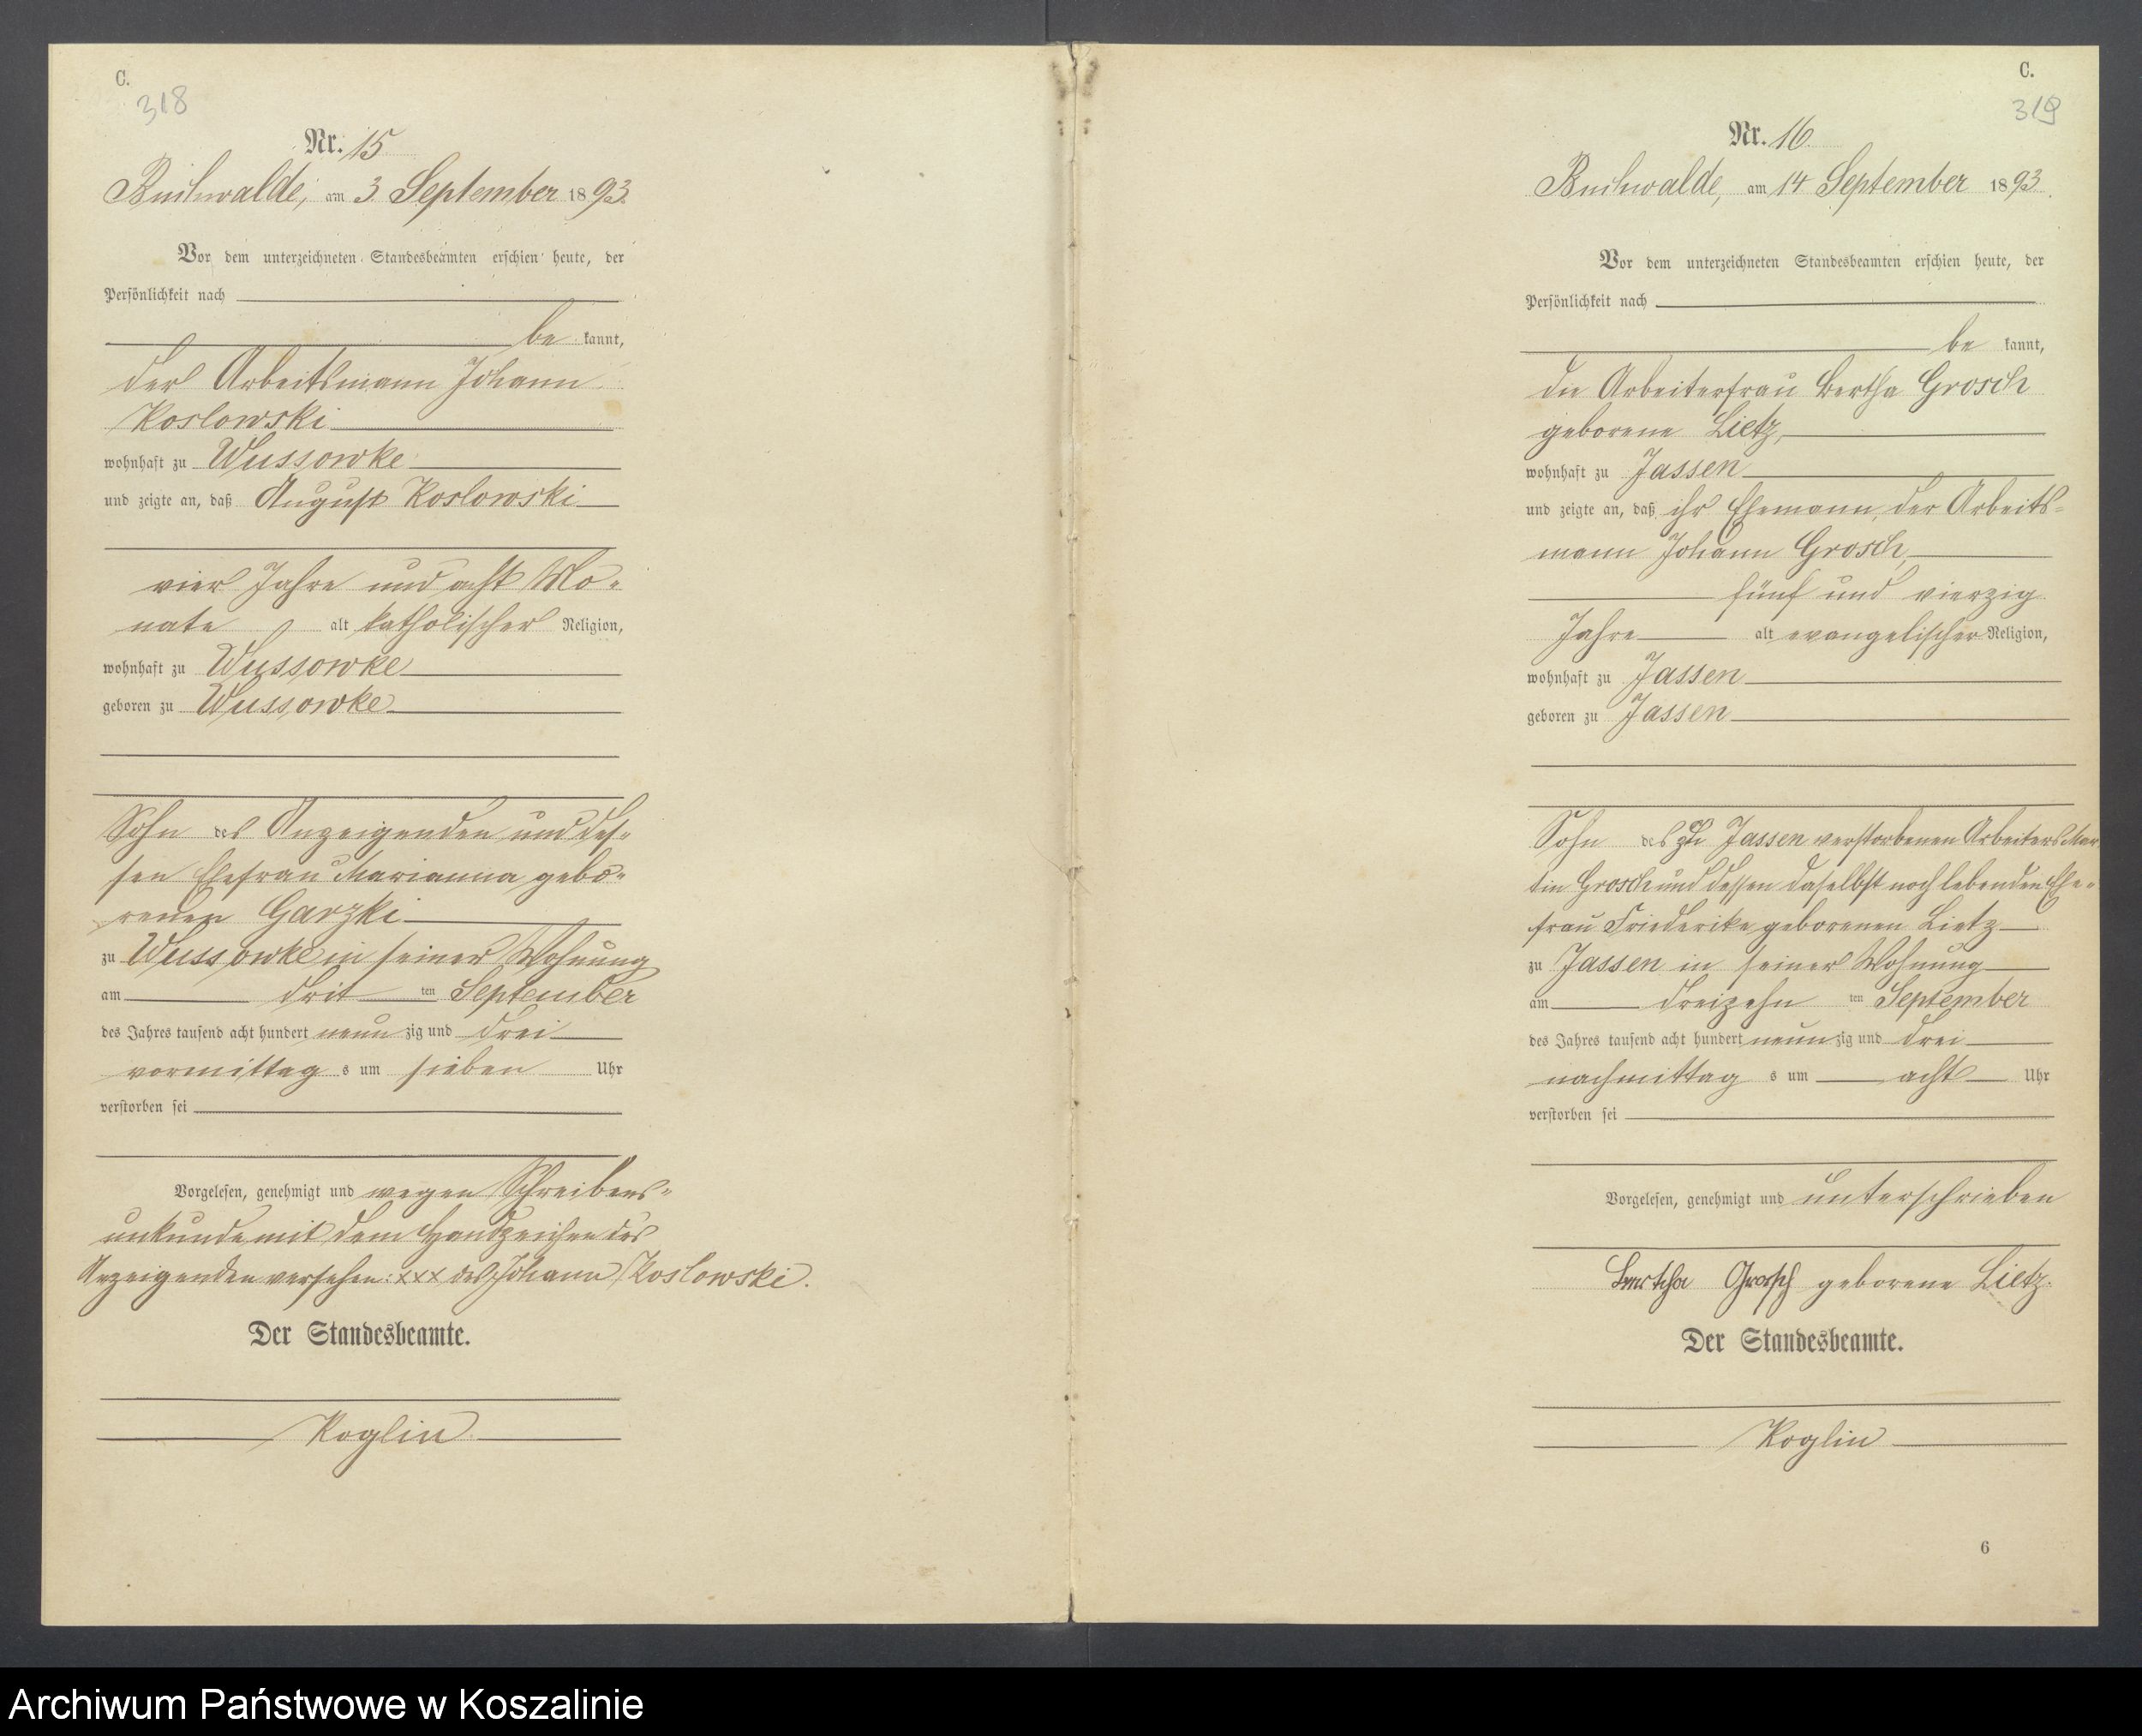 C.
318
Nr. 15
Buchwalde, am 3 September 1893.
Vor dem unterzeichneten Standesbeamten erschien heute, der
Persönlichkeit nach
be kannt,
der Arbeitsmann Johann
Koslowski
wohnhaft zu Wussowke
und zeigte an, daß August Koslowski
vier Jahre und acht Mo-
nate alt katholischer Religion,
wohnhaft zu Wussowke
geboren zu Wussowke
Sohn des Anzeigenden und des-
sen Ehefrau Marianna gebo-
renen Garzki
zu Wussowke in seiner Wohnung
am drit ten September
des Jahres tausend acht hundert neun zig und drei
vormittag s um sieben Uhr
verstorben sei
Vorgelesen, genehmigt und wegen Schreibens-
unkunde mit dem Handzeichen des
Anzeigenden versehen: xxx des Johann Koslowski.
Der Standesbeamte.
Koglin
C.
319
Nr. 16.
Buchwalde, am 14 September 1893.
Vor dem unterzeichneten Standesbeamten erschien heute, der
Persönlichkeit nach
be kannt,
die Arbeiterfrau Bertha Grosch
geborene Lietz,
wohnhaft zu Jassen
und zeigte an, daß ihr Ehemann, der Arbeits-
mann Johann Grosch,
fünf und vierzig
Jahre alt evangelischer Religion,
wohnhaft zu Jassen
geboren zu Jassen
Sohn des zu Jassen verstorbenen Arbeiters Mar
tin Grosch und dessen daselbst noch lebenden Ehe-
frau Friederike geborenen Lietz
zu Jassen in seiner Wohnung
am dreizehn ten September
des Jahres tausend acht hundert neun zig und drei
nachmittag s um acht Uhr
verstorben sei
Vorgelesen, genehmigt und unterschrieben
Bertcha Grosch geborene Lietz.
Der Standesbeamte.
Koglin
6
Archiwum Państwowe w Koszalinie